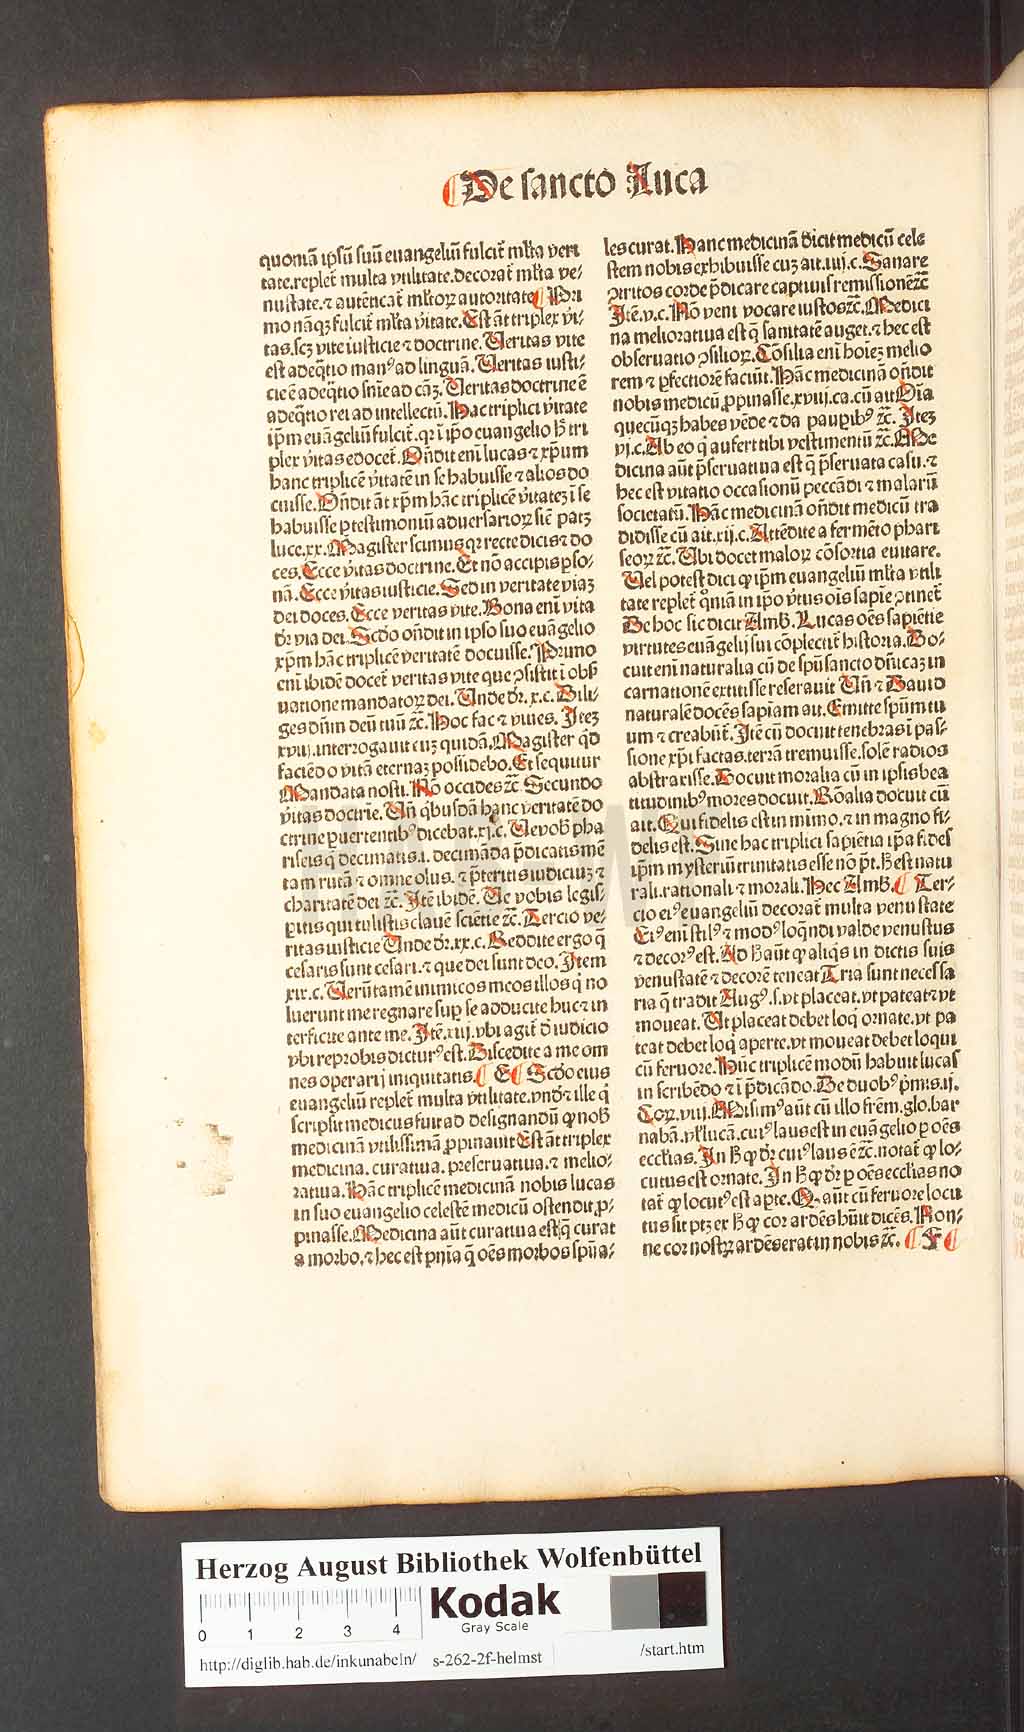 De sancto Luca
quoniã ip̃sũ suũ euangeliũ fulcit᷑ ml̃ta veri
tate. replet᷑ multa vtilitate. decorat᷑ ml̃ta ve⸗
nustate. ⁊ autẽncat᷑ ml̃toꝝ autoritate Pri
mo nãqꝫ fulcit᷑ ml̃ta v̾itate. Est aũt triplex v̾i⸗
tas. scꝫ vite iusticie ⁊ doctrine. Ueritas vite
est adeq̃tio manꝰ ad linguã. Ueritas iusti⸗
cie ẽ adeq̃tio sñie ad cãꝫ. Ueritas doctrine ẽ
adeq̃tio rei ad intellectũ. Hac triplici v̾itate
ip̃m euãgeliũ fulcit᷑. qꝛ ĩ ip̃o euangelio hꝫ tri
plex v̾itas edocet᷑. Oñdit eni lucas ⁊ xp̃um
hanc triplicẽ v̾itatẽ in se habuisse ⁊ alios do
cuisse. Oñdit aũt xp̃m hãc triplicẽ v̾itatẽ ĩ se
habuisse ꝑ testimoniũ aduersarioꝝ sic̃ patꝫ
luce. xx. Magister scimus qꝛ recte dicis ⁊ do
ces. Ecce v̾itas doctrine. Et nõ accipis ꝑso⸗
nã. Ecce v̾itas iusticie. Sed in veritate viaꝫ
dei doces. Ecce veritas vite. Bona eni vita
dr̃ via dei. Scd̃o oñdit in ipso suo euãgelio
xp̃m hãc triplicẽ veritatẽ docuisse. Primo
eni ibidẽ docet᷑ veritas vite que ꝯsistit ĩ obs̃
uatione mandatoꝝ dei. Unde dr̃. x. c. Dili⸗
ges dñm deũ tuũ ⁊c̃. Hoc fac ⁊ viues. Iteꝫ
xviij. interrogauit euꝫ quidã. Magister q̇d
faciẽdo vitã eternaꝫ possidebo. Et sequitur
Mandata nosti. No occides ⁊c̃ Secundo
v̾itas doctrĩe. Uñ q̇busdã hanc veritatẽ do
ctrine ꝑuertentibꝰ dicebat. xj. c. Ue vob̃ pha
riseis q̇ decimatis. i. decimãda p̃dicatis mẽ
tam rutã ⁊ omne olus. ⁊ p̃teritis iudiciuꝫ ⁊
charitatẽ dei ⁊c̃. Itẽ ibidẽ. Ue vobis legis⸗
ꝑitis qui tulistis clauẽ sciẽtie ⁊c̃. Tercio ve⸗
ritas iusticie Unde dr̃. xx. c. Reddite ergo q̃
cesaris sunt cesari. ⁊ que dei sunt deo. Item
xix. c. Uerũtamẽ inimicos meos illos q̇ no
luerunt me regnare suꝑ se adducite huc ⁊ in
terficite ante me. Itẽ. xiij. vbi agit᷑ d̃ iudicio
vbi reprobis dicturꝰ est. Discedite a me om
nes operarij iniquitatis. E Scd̃o eius
euangeliũ replet᷑ multa vtilitate. vnd̾ ⁊ ille q̇
scripsit medicus fuit ad designandũ ꝙ nob̃
medicinã vtilissimã ꝓpinauit Est aũt triplex
medicina. curatiua. preseruatiua. ⁊ melio⸗
ratiua. Hãc triplicẽ medicinã nobis lucas
in suo euangelio celestẽ medicũ ostendit ꝓ⸗
pinasse. Medicina aũt curatiua est q̃ curat
a morbo. ⁊ hec est pñia q̃ oẽs morbos sp̃ua⸗
les curat. Hanc medicinã dicit medicũ cele
stem nobis exhibuisse cuꝫ ait. iiij. c. Sanare
ꝯtritos corde p̃dicare captiuis remissionẽ ⁊c̃
Itẽ. v. c. Nõ veni vocare iustos ⁊c̃. Medici
na melioratiua est q̃ sanitatẽ auget. ⁊ hec est
obseruatio ꝯsilioꝝ. Cõsilia eni hoieꝫ melio
rem ⁊ ꝑfectiorẽ faciũt. Hãc medicinã oñdit
nobis medicũ ꝓpinasse. xviij. ca. cũ ait Oĩa
quecũqꝫ habes vẽde ⁊ da pauꝑibꝰ ⁊c̃. Iteꝫ
vj. c. Ab eo q̇ aufert tibi vestimentũ ⁊c̃. Me
dicina aũt p̃seruatiua est q̃ p̃seruat a casu. ⁊
hec est vitatio occasionũ peccãdi ⁊ malarũ
societatũ. Hãc medicinã oñdit medicũ tra
didisse cũ ait. xij. c. Attẽdite a fermẽto phari
seoꝝ ⁊c̃. Ubi docet maloꝝ cõsortia euitare.
Uel potest dici ꝙ ip̃m euangeliũ ml̃ta vtili
tate replet᷑ qm̃ã in ip̃o v̾tus oĩs sapie ꝯtinet᷑
De hoc sic dicit Amb̃. Lucas oẽs sapiẽtie
virtutes euãgelij sui cõplectit᷑ historia. Do⸗
cuit eni naturalia cũ de spũ sancto dñicaꝫ in
carnationẽ extitisse reserauit Uñ ⁊ Dauid
naturalẽ docẽs sapiam ait. Emitte spũm tu
um ⁊ creabũt᷑. Itẽ cũ docuit tenebras ĩ pas⸗
sione xp̃i factas. terrã tremuisse. solẽ radios
abstraxisse. Docuit moralia cũ in ipsis bea
titudinibꝰ mores docuit. Rõalia docuit cũ
ait. Qui fidelis est in minimo. ⁊ in magno fi⸗
delis est. Sine hac triplici sapiẽtia ip̃a fides
ip̃m mysteriũ trinitatis esse nõ p̃t. hꝫ est natu
rali. rationali ⁊ morali. Hec Amb̃. Ter⸗
cio eiꝰ euangeliũ decorat᷑ multa venustate
Eiꝰ eni stilꝰ ⁊ modꝰ loq̃ndi valde venustus
⁊ decorꝰ est. Ad hꝫ aũt ꝙ aliq̇s in dictis suis
venustatẽ ⁊ decorẽ teneat Tria sunt necessa
ria q̃ tradit Augꝰ. s. vt placeat. vt pateat ⁊ vt
moueat. Ut placeat debet loq̇ ornate. vt pa
teat debet loq̇ aperte. vt moueat debet loqui
cũ feruore. Hũc triplicẽ modũ habuit lucas
in scribẽdo ⁊ ĩ p̃dicãdo. De duobꝰ p̃mis. ij.
Coꝝ. viij. Misimꝰ aũt cũ illo fr̃em. glo. bar
nabã. vl̾ lucã. cuiꝰ laus est in euãgelio ꝑ oẽs
ecclias. In hꝫ ꝙ dr̃ cuiꝰ laus ẽ ⁊c̃. notat᷑ ꝙ lo⸗
cutus est ornate. In hꝫ ꝙ dr̃ ꝑ oẽs ecclias no
tat᷑ ꝙ locutꝰ est aꝑte. Q, aũt cũ feruore locu
tus sit ptꝫ ex hꝫ ꝙ cor ardẽs hũit dicẽs. Non⸗
ne cor nostꝝ ardẽs erat in nobis ⁊c̃. F
Herzog August Bibliothek Wolfenbüttel
0 1 2 3 4
Kodak
Gray Scale
http://diglib.hab.de/inkunabeln/ s-262-2f-helmst /start.htm